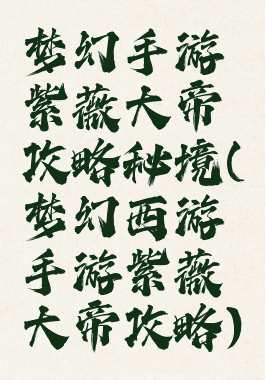 梦幻手游
紫薇大帝
攻略秘境(
梦幻西游
手游紫薇
大帝攻略)